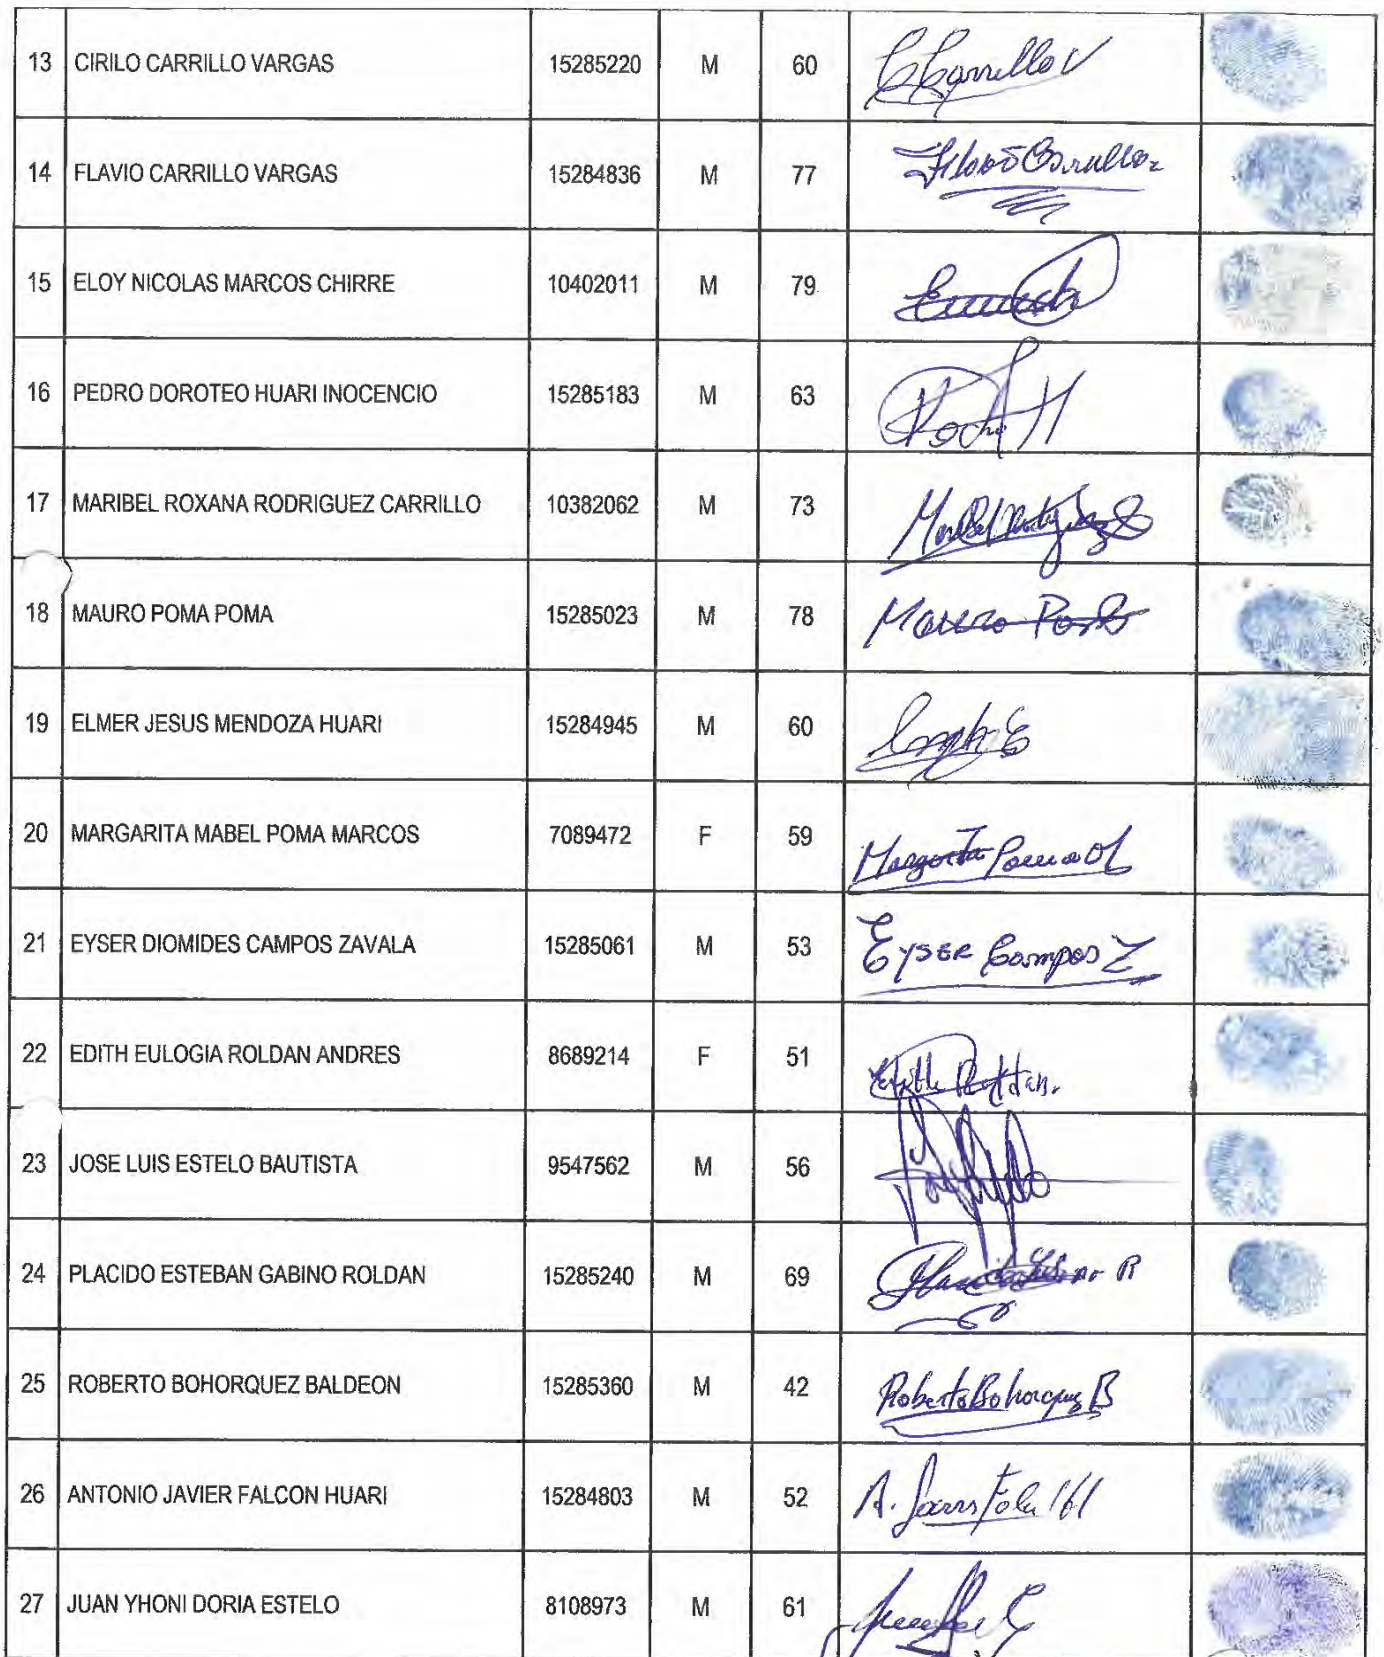 13 CIRILO CARRILLO VARGAS 15285220 M 60 CCarrillo V
14 FLAVIO CARRILLO VARGAS 15284836 M 77
15 ELOY NICOLAS MARCOS CHIRRE 10402011 M 79
16 PEDRO DOROTEO HUARI INOCENCIO 15285183 M 63
17 MARIBEL ROXANA RODRIGUEZ CARRILLO 10382062 M 73
18 MAURO POMA POMA 15285023 M 78 Mauro
19 ELMER JESUS MENDOZA HUARI 15284945 M 60
20 MARGARITA MABEL POMA MARCOS 7089472 F 59 Margarita Poma M
21 EYSER DIOMIDES CAMPOS ZAVALA 15285061 M 53 EYSER Campos Z
22 EDITH EULOGIA ROLDAN ANDRES 8689214 F 51 Edith Roldan.
23 JOSE LUIS ESTELO BAUTISTA 9547562 M 56
24 PLACIDO ESTEBAN GABINO ROLDAN 15285240 M 69
25 ROBERTO BOHORQUEZ BALDEON 15285360 M 42 Roberto Bohorquez B
26 ANTONIO JAVIER FALCON HUARI 15284803 M 52
27 JUAN YHONI DORIA ESTELO 8108973 M 61